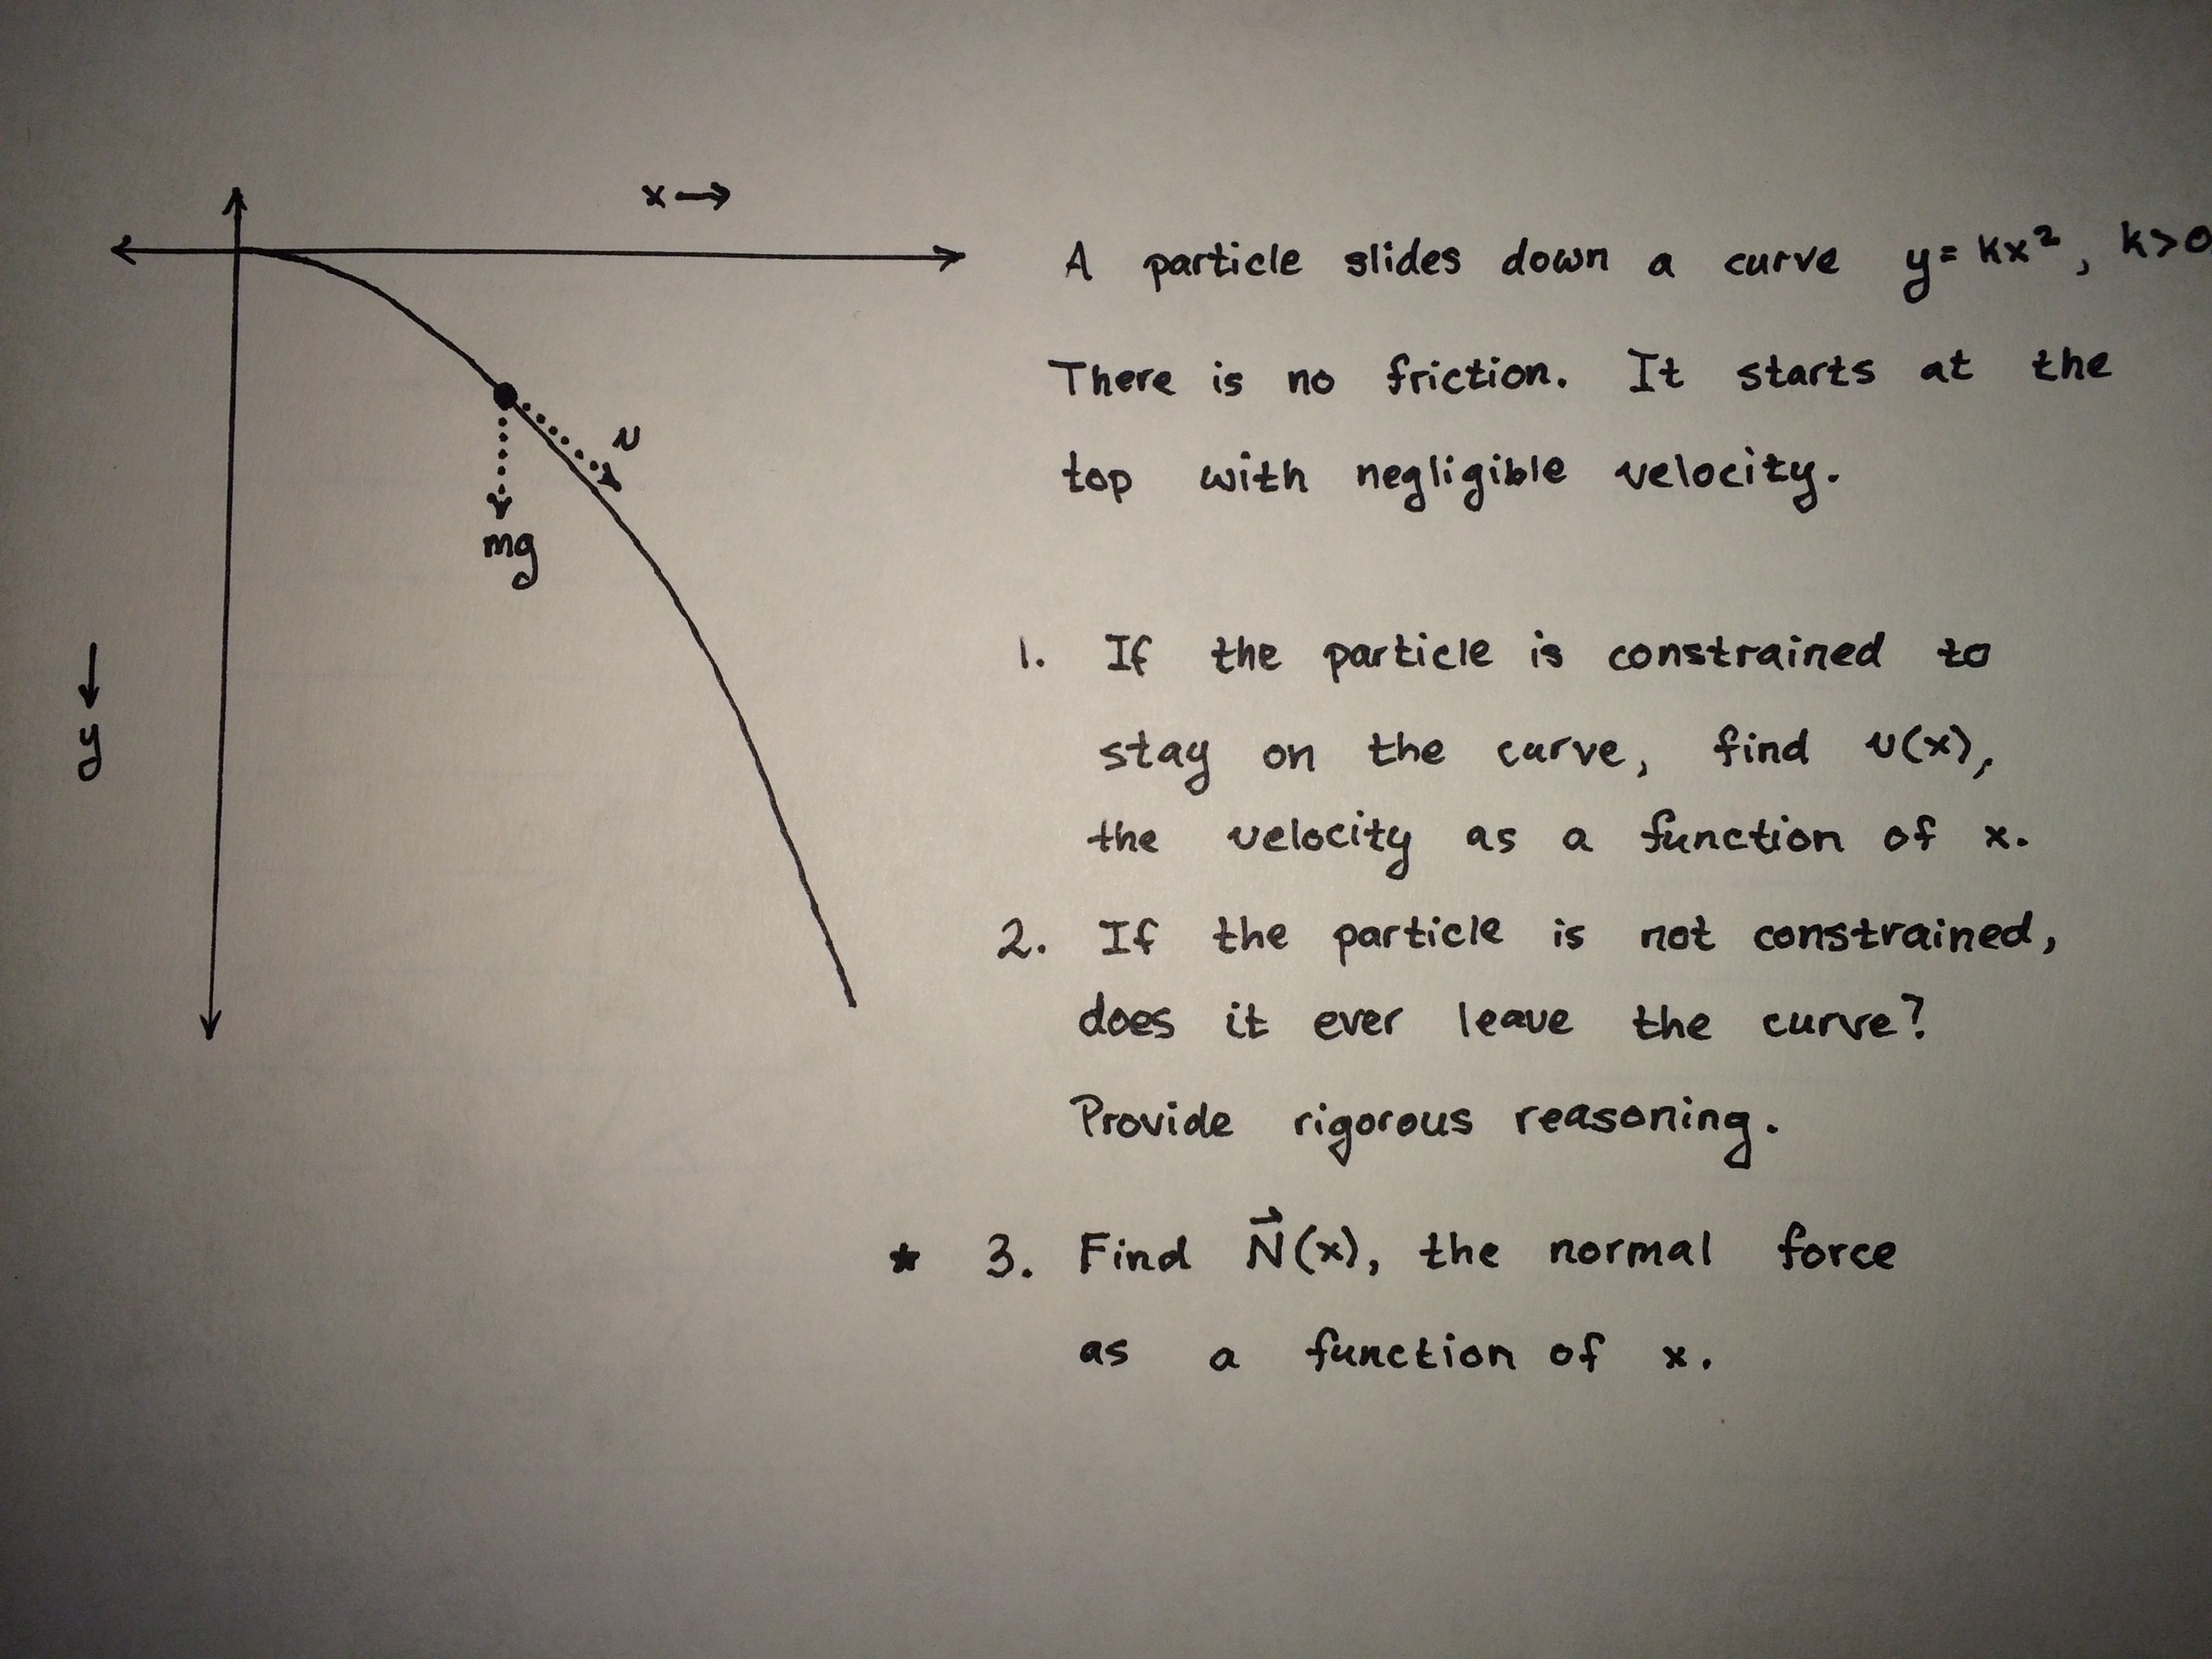 x →
A particle slides down a curve y = kx², k>0
There is no friction. It starts at the
top with negligible velocity.
v
mg
↓
y
1. If the particle is constrained to
stay on the curve, find v(x),
the velocity as a function of x.
2. If the particle is not constrained,
does it ever leave the curve?
Provide rigorous reasoning.
★ 3. Find N⃗(x), the normal force
as a function of x.